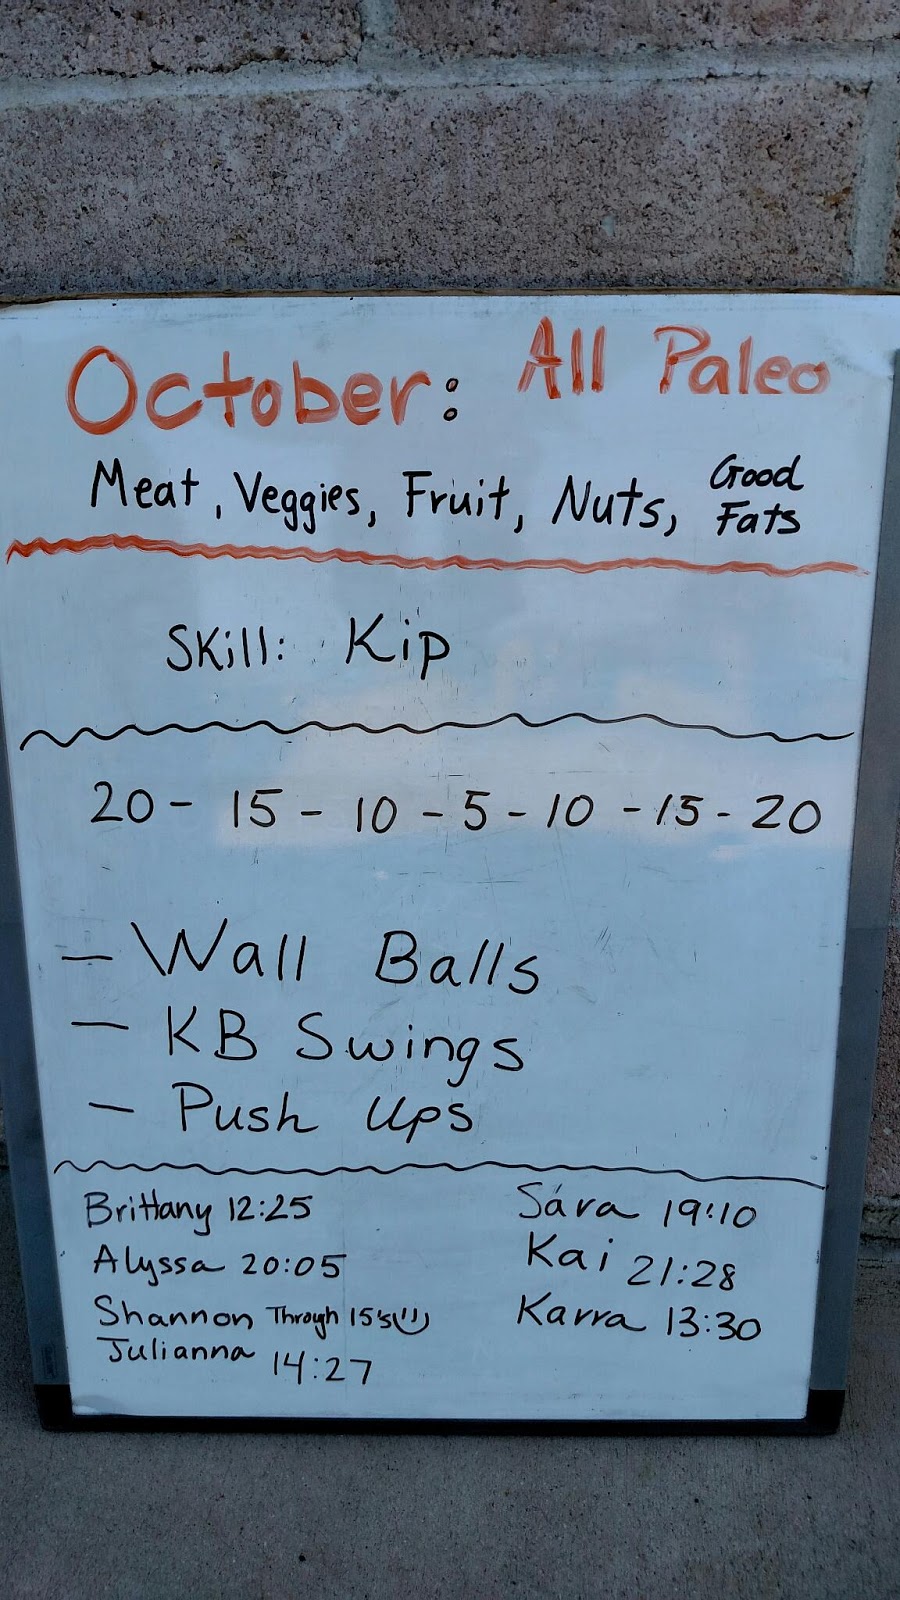 October: All Paleo
Meat, Veggies, Fruit, Nuts, Good Fats
Skill: Kip
20 - 15 - 10 - 5 - 10 - 15 - 20
- Wall Balls
- KB Swings
- Push Ups
Brittany 12:25
Alyssa 20:05
Shannon Through 15's
Julianna 14:27
Sara 19:10
Kai 21:28
Karra 13:30